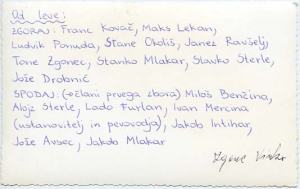 Od leve:
ZGORAJ: Franc Kovač, Maks Lekan,
Ludvik Ponuda, Stane Okoliš, Janez Ravšelj,
Tone Zgonec, Stanko Mlakar, Slavko Sterle,
Jože Drobnič
SPODAJ: (člani prvega zbora) Miloš Benčina,
Alojz Sterle, Lado Furlan, Ivan Mercina
(ustanovitelj in pevovodja), Jakob Intihar,
Jože Avsec, Jakob Mlakar